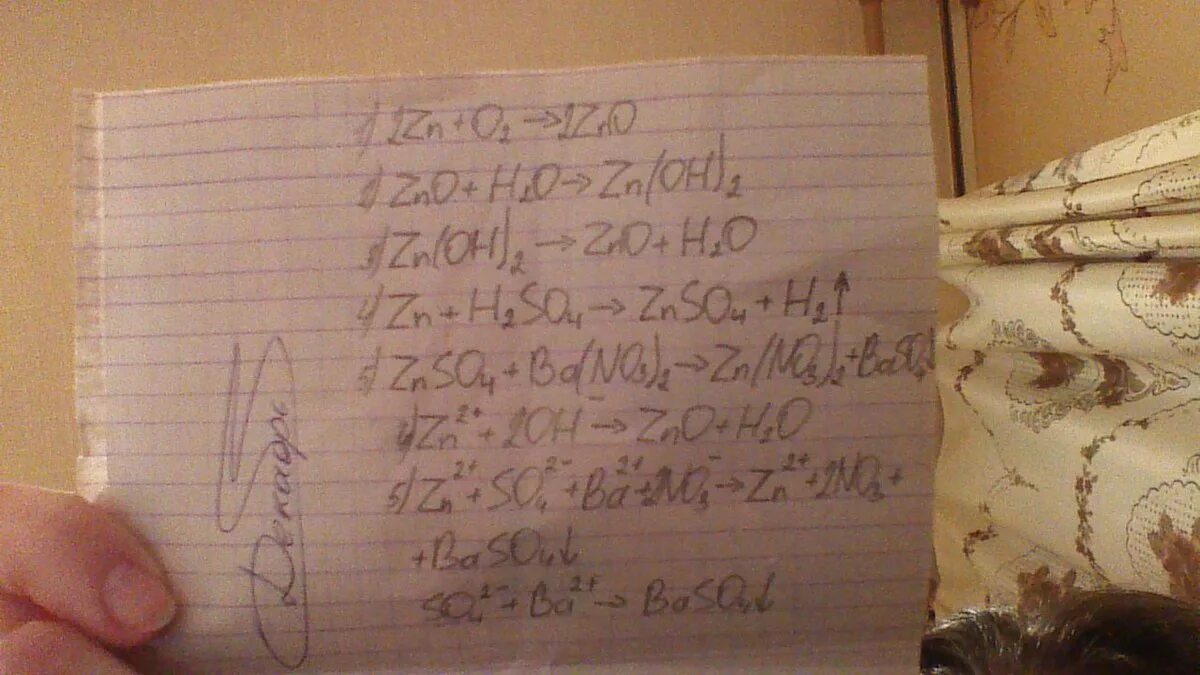 1) 2Zn + O₂ → 2ZnO
2) ZnO + H₂O → Zn(OH)₂
3) Zn(OH)₂ → ZnO + H₂O
4) Zn + H₂SO₄ → ZnSO₄ + H₂↑
5) ZnSO₄ + Ba(NO₃)₂ → Zn(NO₃)₂ + BaSO₄↓
4) Zn²⁺ + 2OH⁻ → ZnO + H₂O
5) Zn²⁺ + SO₄²⁻ + Ba²⁺ + 2NO₃⁻ → Zn²⁺ + 2NO₃⁻ +
+ BaSO₄↓
SO₄²⁻ + Ba²⁺ → BaSO₄↓